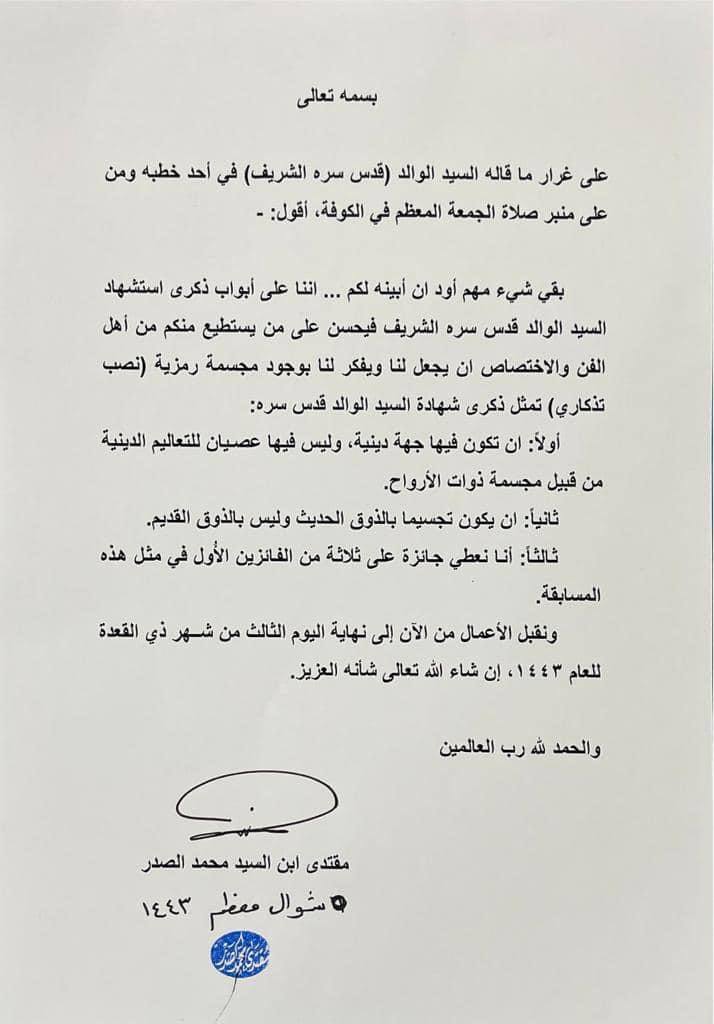 بسمه تعالى
على غرار ما قاله السيد الوالد (قدس سره الشريف) في أحد خطبه ومن
على منبر صلاة الجمعة المعظم في الكوفة، أقول: -
بقي شيء مهم أود ان أبينه لكم ... اننا على أبواب ذكرى استشهاد
السيد الوالد قدس سره الشريف فيحسن على من يستطيع منكم من أهل
الفن والاختصاص ان يجعل لنا ويفكر لنا بوجود مجسمة رمزية (نصب
تذكاري) تمثل ذكرى شهادة السيد الوالد قدس سره:
أولاً: ان تكون فيها جهة دينية، وليس فيها عصيان للتعاليم الدينية
من قبيل مجسمة ذوات الأرواح.
ثانياً: ان يكون تجسيما بالذوق الحديث وليس بالذوق القديم.
ثالثاً: أنا نعطي جائزة على ثلاثة من الفائزين الأُول في مثل هذه
المسابقة.
ونقبل الأعمال من الآن إلى نهاية اليوم الثالث من شهر ذي القعدة
للعام ١٤٤٣، إن شاء الله تعالى شأنه العزيز.
والحمد لله رب العالمين
مقتدى ابن السيد محمد الصدر
شوال معظم ١٤٤٣